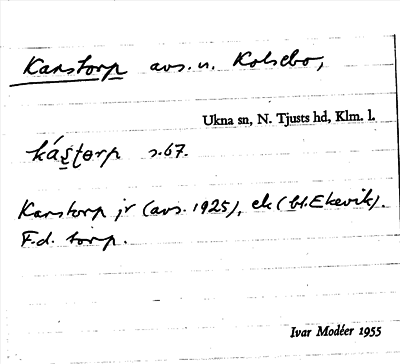 Karstorp avs. u. Kolsebo,
Ukna sn, N. Tjusts hd, Klm. l.
káʂʈɵrp s.67.
Karstorp jr (avs. 1925), ek (bl. Ekevik).
F.d. torp.
Ivar Modéer 1955